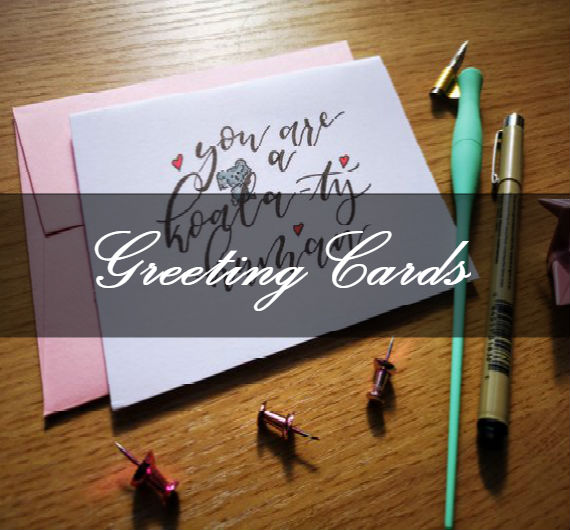 you are
a
koala-ty
human
Greeting Cards